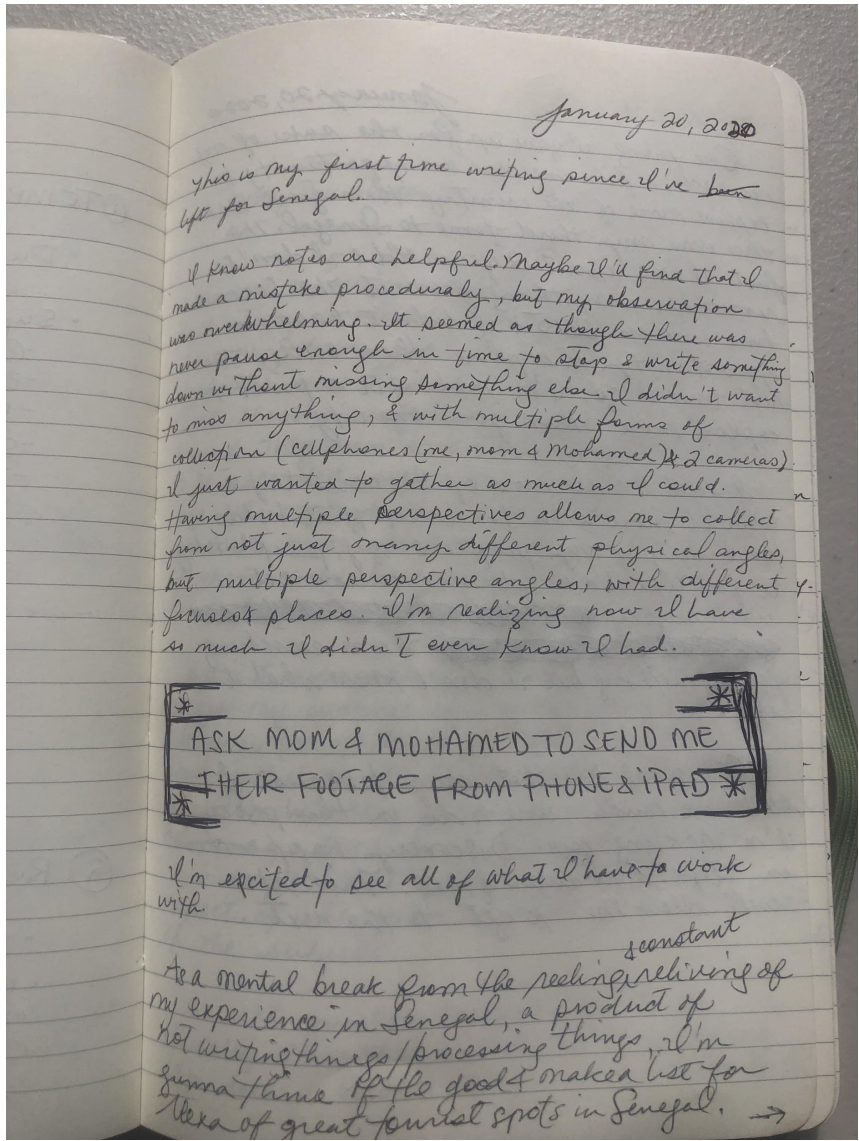 January 20, 2020
This is my first time writing since I've been
left for Senegal.
I know notes are helpful. Maybe I'll find that I
made a mistake proceduraly, but my observation
was overwhelming. It seemed as though there was
never pause enough in time to stop & write something
down without missing something else. I didn't want
to miss anything, & with multiple forms of
collection (cellphones (me, mom & Mohamed) & 2 cameras)
I just wanted to gather as much as I could.
Having multiple perspectives allows me to collect
from not just many different physical angles,
but multiple perspective angles, with different
focuses & places. I'm realizing now I have
so much I didn't even know I had.
* *
ASK MOM & MOHAMED TO SEND ME
* THEIR FOOTAGE FROM PHONE & iPAD *
I'm excited to see all of what I have to work
with.
& constant
As a mental break from the reeling, reliving of
my experience in Senegal, a product of
not writing things/processing things, I'm
gunna think of the good & make a list for
Alexa of great tourist spots in Senegal. →